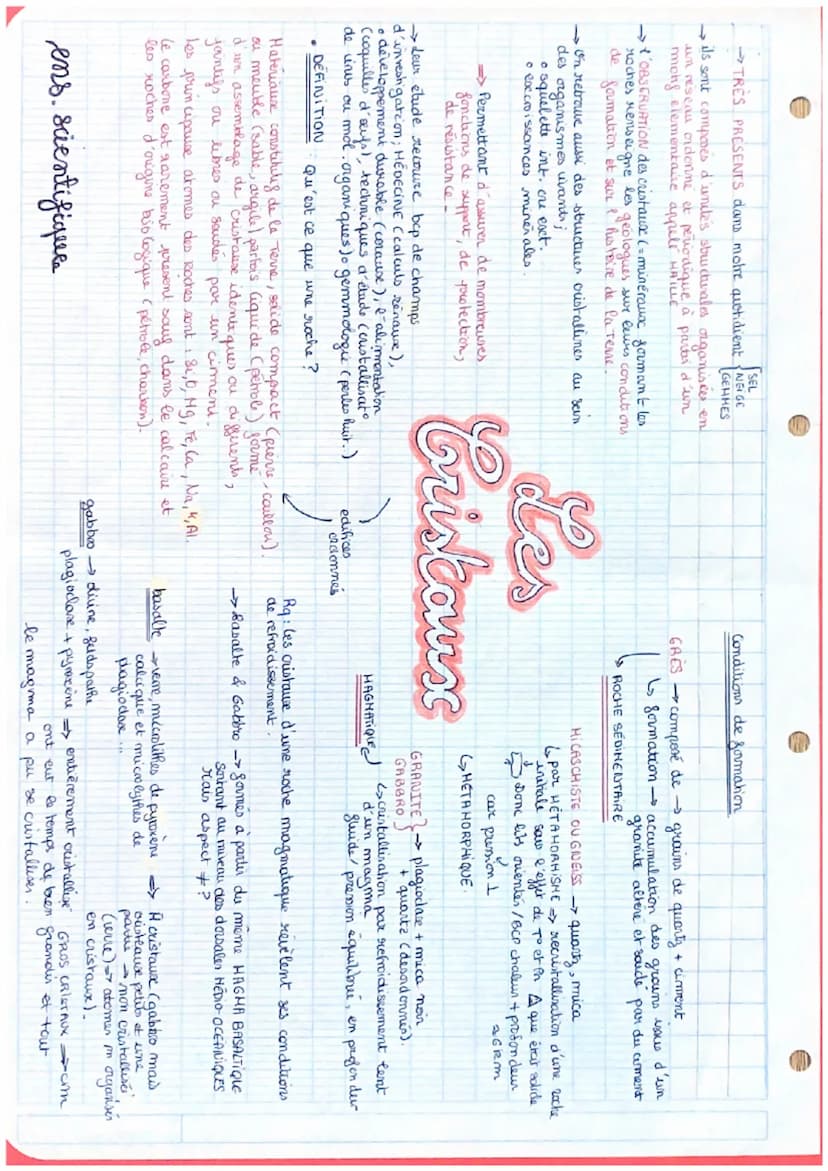 ens. scientifique
Les
Cristaux
→ TRÈS PRÉSENTS dans notre quotidient { SEL
NEIGE
GEMMES
→ ils sont composés d'unités structurales organisées en
un réseau ordonné et périodique, à partir d'un
motif élémentaire appelé MAILLE
→ l'OBSERVATION des cristaux (= minéraux formant les
roches renseigne les géologues sur leurs conditions
de formation et sur l'histoire de la Terre.
→ On retrouve aussi des structures cristallines au sein
des organismes vivants ;
• squelett int. ou ext.
• excroissances minérales.
⇒ Permettant d'assurer de nombreuses
fonctions de support, de protection,
de résistance.
→ Leur étude recouvre bcp de champs
d'investigation ; MÉDECINE (calculs rénaux),
• développement durable (coraux), l'alimentation
(coquilles d'œufs), techniques d'étude (cristallisat°
de virus ou mol. organiques) o gemmologie (perles huit.)
• DÉFINITION : qu'est ce que une roche ?
Matériaux constitutifs de la Terre, solide compact (pierre, caillou).
ou meuble (sable, argile) parfois liquide (pétrole) formé
d'un assemblage de cristaux identiques ou différents,
jointifs ou libres ou soudés par un ciment.
Les principaux atomes des Roches sont : Si, O, Mg, Fe, Ca, Na, K, Al.
Le carbone est rarement présent sauf dans le calcaire et
les roches d'origine biologique (pétrole, charbon).
édifices
ordonnés
Conditions de formation
GRÈS → composé de → grains de quartz + ciment
↳ formation → accumulation des grains issus d'un
granite altéré et soudé par du ciment
↳ ROCHE SÉDIMENTAIRE
MICASCHISTE OU GNEISS → quartz, mica
↳ par MÉTAMORPHISME ⇒ recristallisation d'une roche
initiale sous l'effet de T° et Pr Δ que état solide
Donc lits orientés / Bcp chaleur + profondeur
car pression ⊥ ≈ 6 km
↳ MÉTAMORPHIQUE.
GRANITE
GABBRO } → plagioclase + mica noir
+ quartz (désordonné).
MAGMATIQUE
↳ cristallisation par refroidissement lent
d'un magma
fluide / pression équilibré, en profondeur
Rq : les cristaux d'une roche magmatique révèlent ses conditions
de refroidissement.
→ Basalte & Gabbro → formés à partir du même MAGMA BASALTIQUE
sortant au niveau des dorsales MÉDIO-OCÉANIQUES
Mais aspect ≠ ?
basalte → verre, microlithes de pyroxène
calcique et microlythes de
plagioclase ...
⇒ A cristaux (gabbro mais
cristaux petits et une
partie → non cristallisée
(verre) → atomes organisés
en cristaux).
gabbro → olivine, feldspaths
plagioclase + pyroxène ⇒ entièrement cristallisé GROS CRISTAUX → cm
ont eut le temps de bien grandir et tout
le magma a pu se cristalliser.